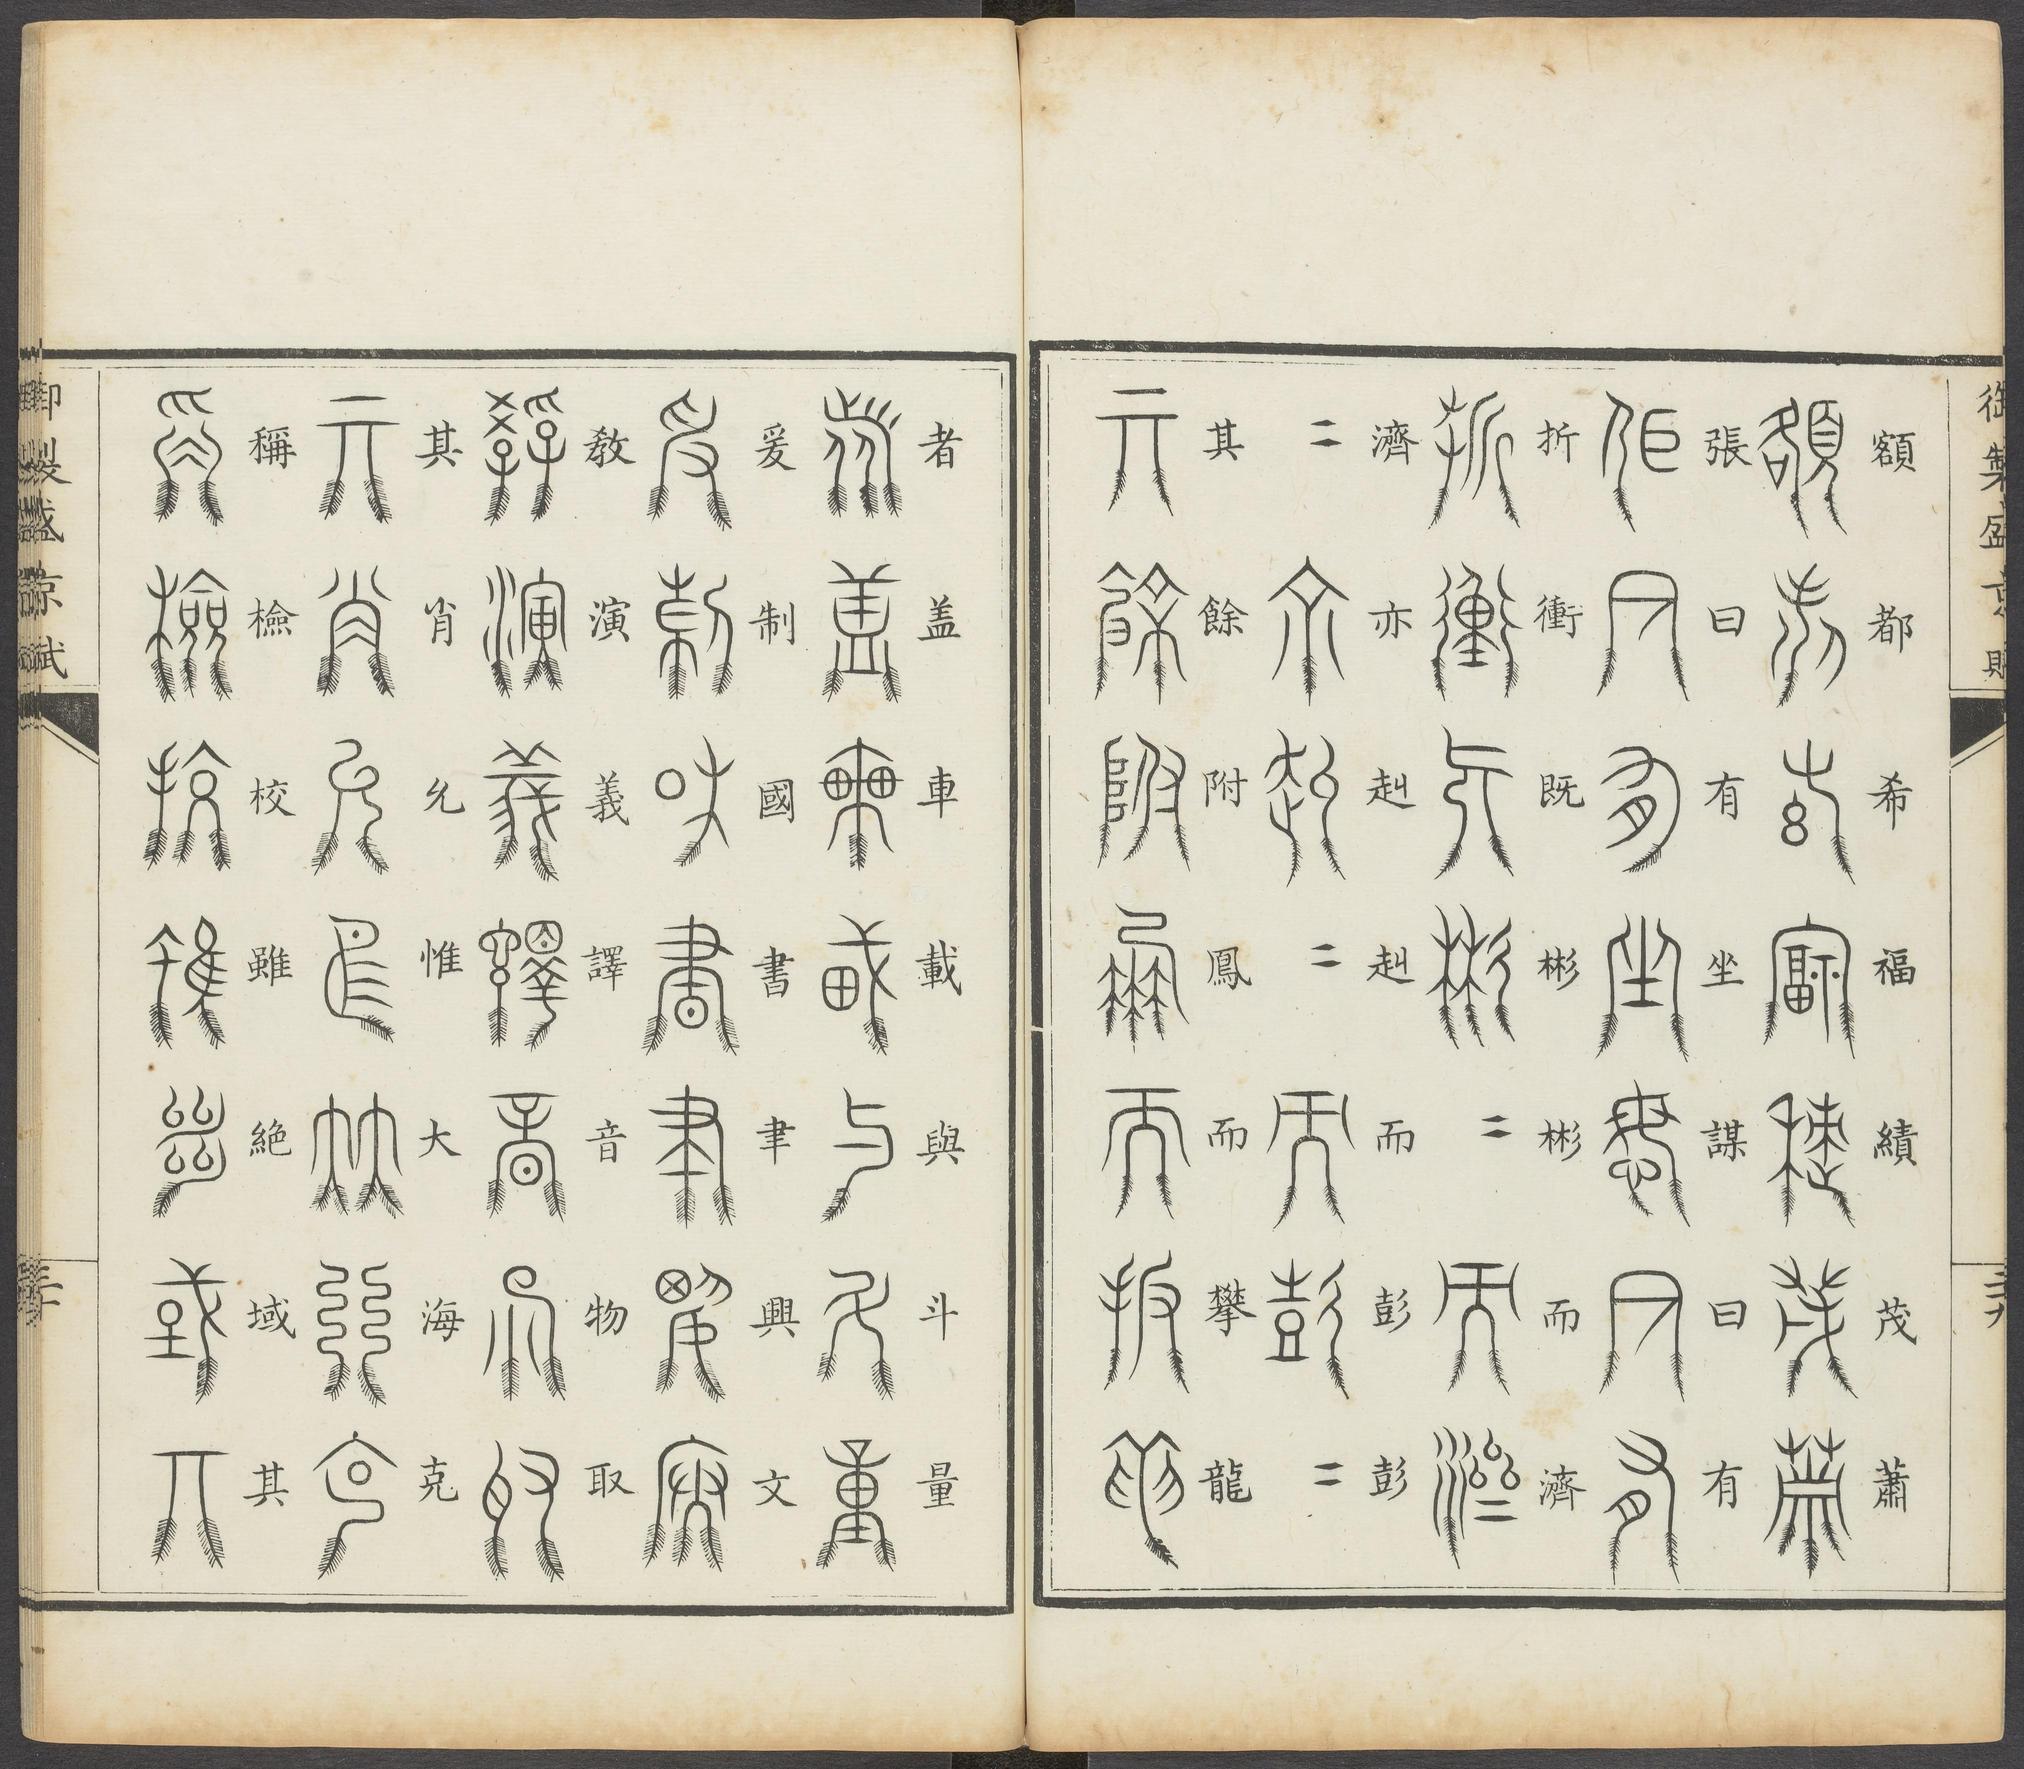 御製盛京賦
額都希福績茂蕭
張曰有坐謀曰有
折衝既彬彬而濟
濟亦赳赳而彭彭
其餘附鳳而攀龍
者盖車載與斗量
爰制國書聿興文
教演義譯音物取
其肖允惟大海克
稱檢校雖絶域其
御製盛京賦